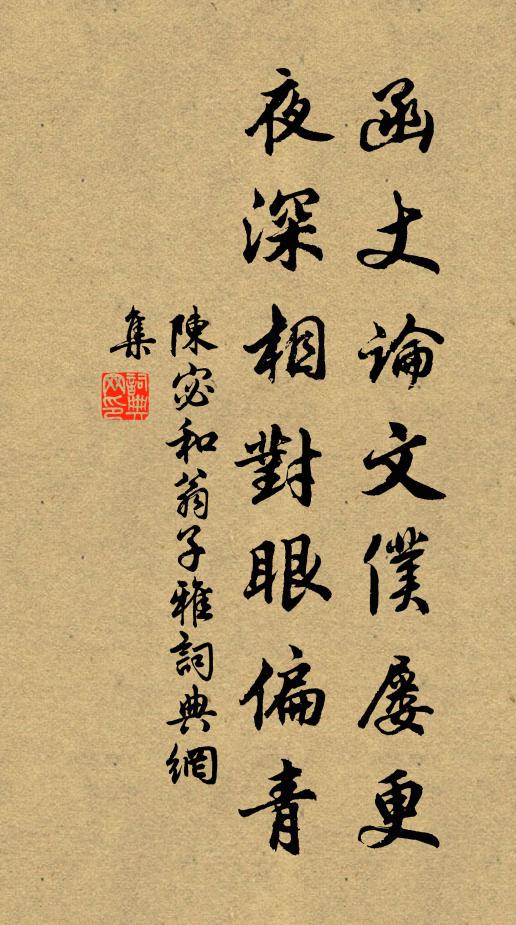 函丈論文僕屢更
夜深相對眼偏青
陳宓和翁子雅詞典網
集
詞典網印